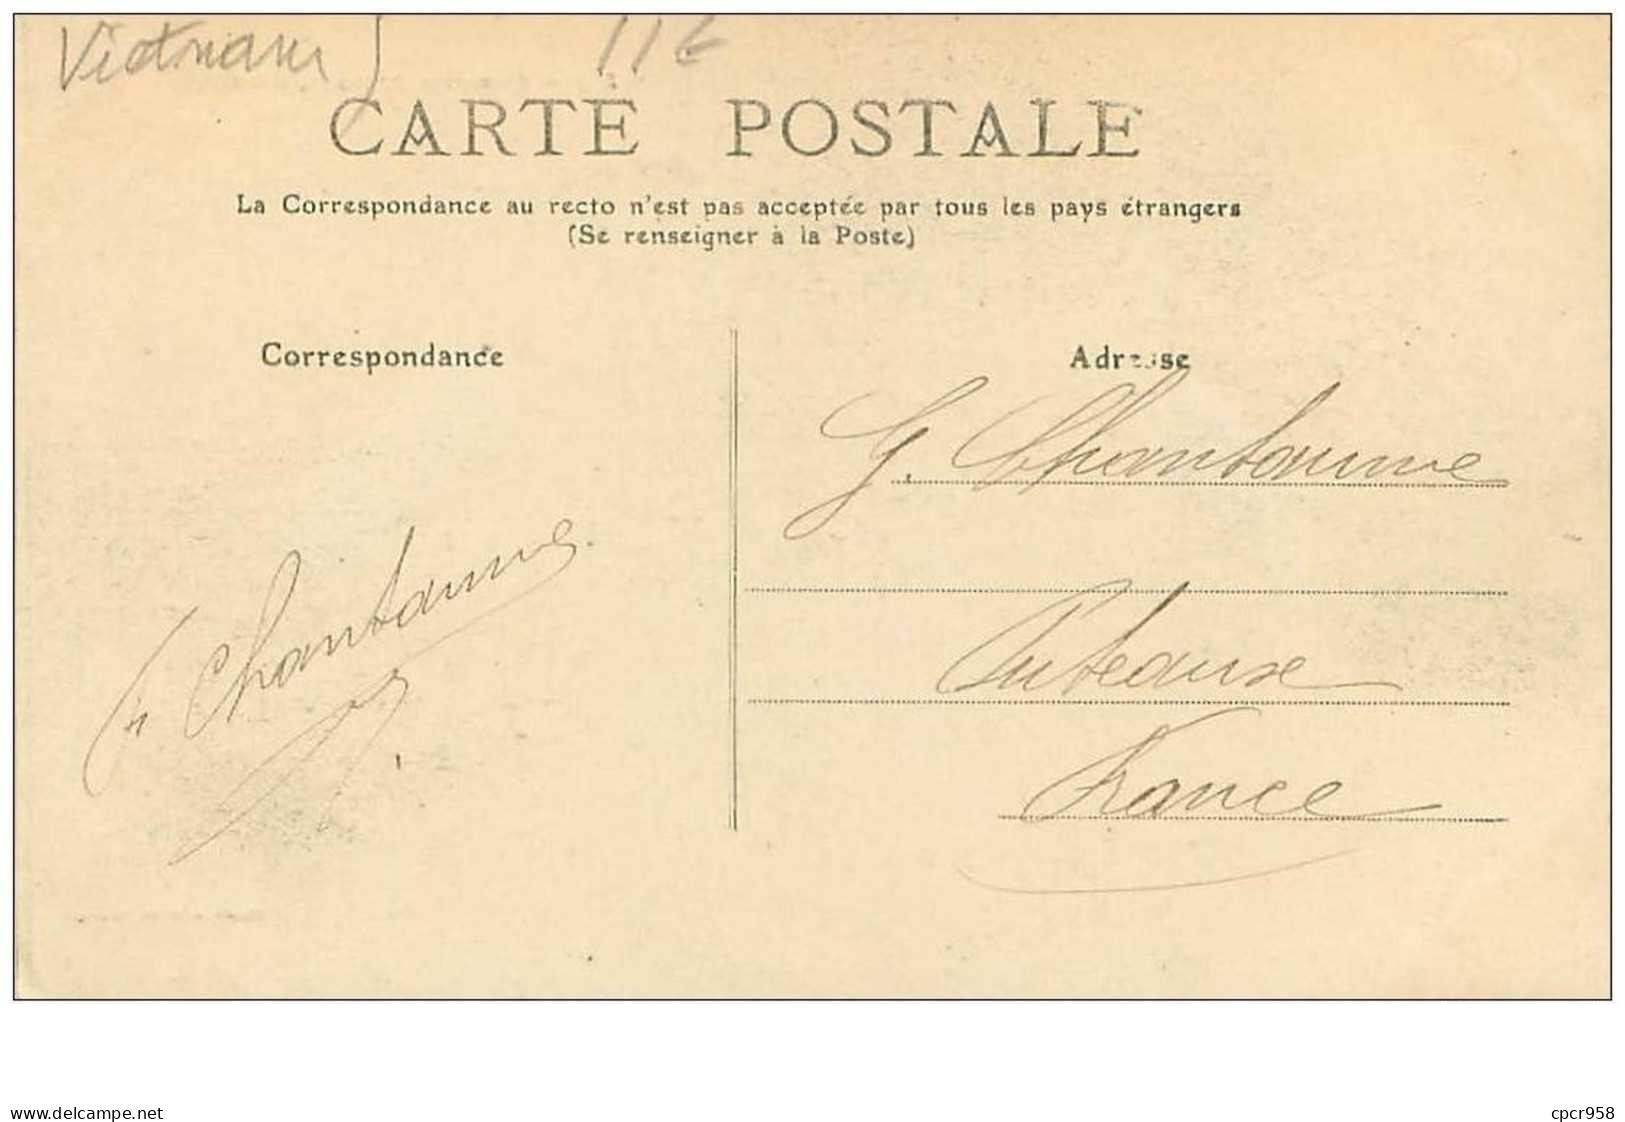 Vietnam
11€
CARTE POSTALE
La Correspondance au recto n'est pas acceptée par tous les pays étrangers
(Se renseigner à la Poste)
Correspondance
Adresse
G. Chantaume
Chantaume
Puteaux
France
www.delcampe.net
cpcr958